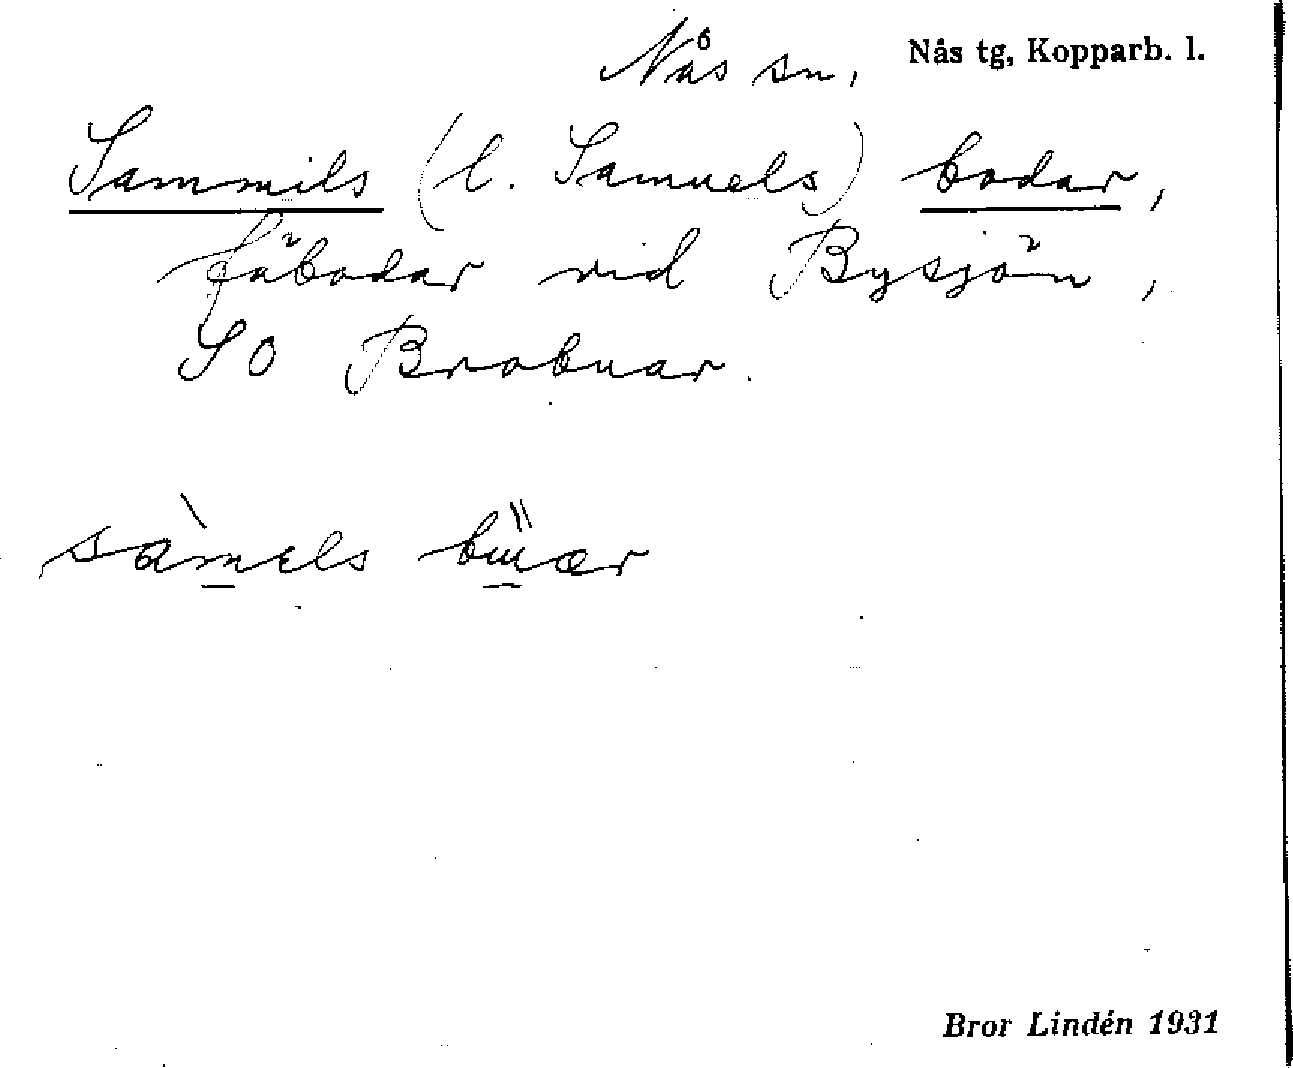 Nås sn, Nås tg, Kopparb. l.
Sammils (l. Samuels) bodar,
fäbodar vid Bysjön,
SO Brobuar.
sàmels bɯ̏ær
Bror Lindén 1931